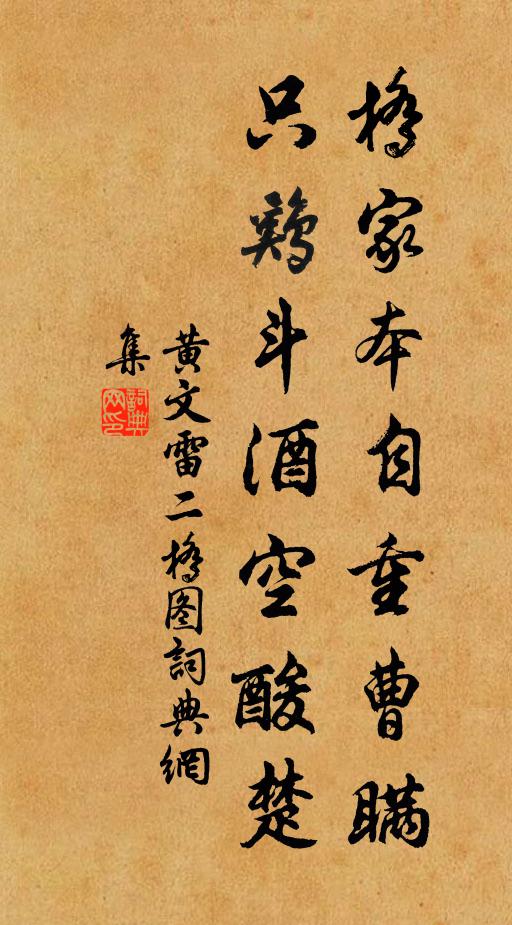 橋家本自重曹瞞
只鷄斗酒空酸楚
黄文雷二橋图詞典網
集
詞典网印